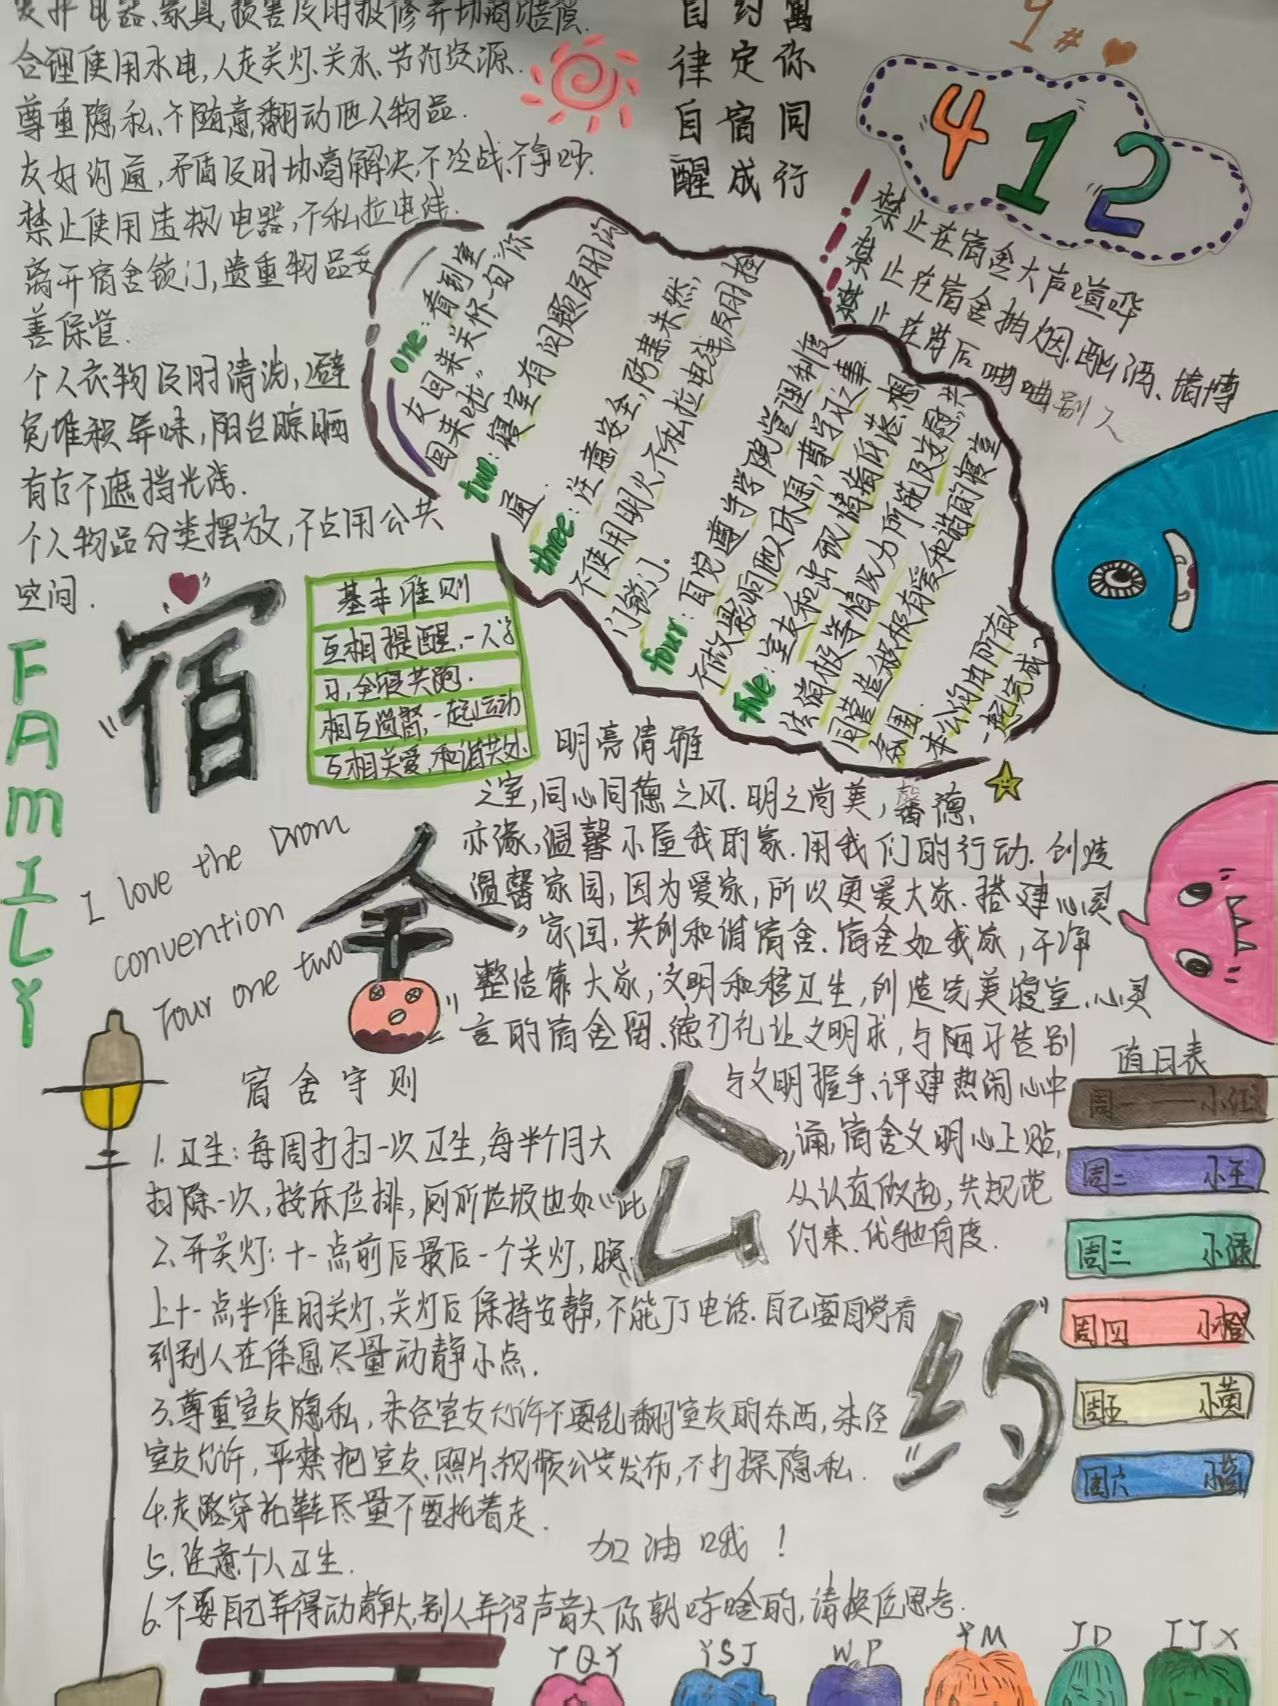 电器、家具,损害及时报修并协商赔偿.
合理使用水电,人走关灯、关水、节约资源.
尊重隐私、不随意翻动他人物品.
友好沟通,矛盾及时协商解决,不冷战、不争吵.
禁止使用违规电器,不私拉电线.
离开宿舍锁门,贵重物品妥
善保管.
个人衣物及时清洗,避
免堆积异味,阳台晾晒
有序不遮挡光线.
个人物品分类摆放,不占用公共
空间.
自律自醒
约定宿成
寓你同行
9#
412
禁止在宿舍大声喧哗
禁止在宿舍抽烟、酗酒、赌博
禁止在背后嘀嘀别人
one:看到室
友回来关怀一句“你
回来啦”
two:寝室有问题及时沟
通.
three:注意安全,防患未然,
不使用明火不私拉电线及时检
门锁门.
four:自觉遵守学院管理制度
不做影响他人休息,学习之事
five:室友和出现情绪低落,想
法消极等情况力所能及安慰,共
同营造积极有爱和谐的寝室
氛围.
本公约由所有
一起完成
宿舍公约
FAMILY
基本准则
互相提醒,一人学
习,全寝共跑.
相互监督,一起运动
互相关爱,和谐共处.
I love the Drom
convention
Four one two
明亮清雅
之室,同心同德之风.明之尚美,馨德、
亦涤,温馨小屋我的家.用我们的行动.创造
温馨家园,因为爱家,所以更爱大家.搭建心灵
家园,共创和谐宿舍.宿舍如我家,干净
整洁靠大家,文明和移卫生,创造完美寝室.心灵
言的宿舍留、德行礼让文明求,与陋习告别
与文明握手、评建热闹心中
涌,宿舍文明心上贴,
从认真做起,共规范
约来、优驰有度.
值日表
周一 小红
周二 小王
周三 小绿
周四 小橙
周五 小黄
周六 小蓝
宿舍守则
1.卫生:每周打扫一次卫生,每半个月大
扫除一次,按床位排,厕所垃圾也如此
2.开关灯:十一点前后最后一个关灯,晚
上十一点半准时关灯,关灯后保持安静,不能打电话.自己要自觉看
到别人在休息尽量动静小点.
3.尊重室友隐私,未经室友允许不要乱翻室友的东西,未经
室友允许,严禁把室友、照片、视频公安发布,不打探隐私.
4.走路穿拖鞋尽量不要拖着走.
5.注意个人卫生.
加油哦!
6.不要自己弄得动静大,别人弄得声音大你就哼啥的,请换位思考.
YQY YSJ WP YM JD IJX